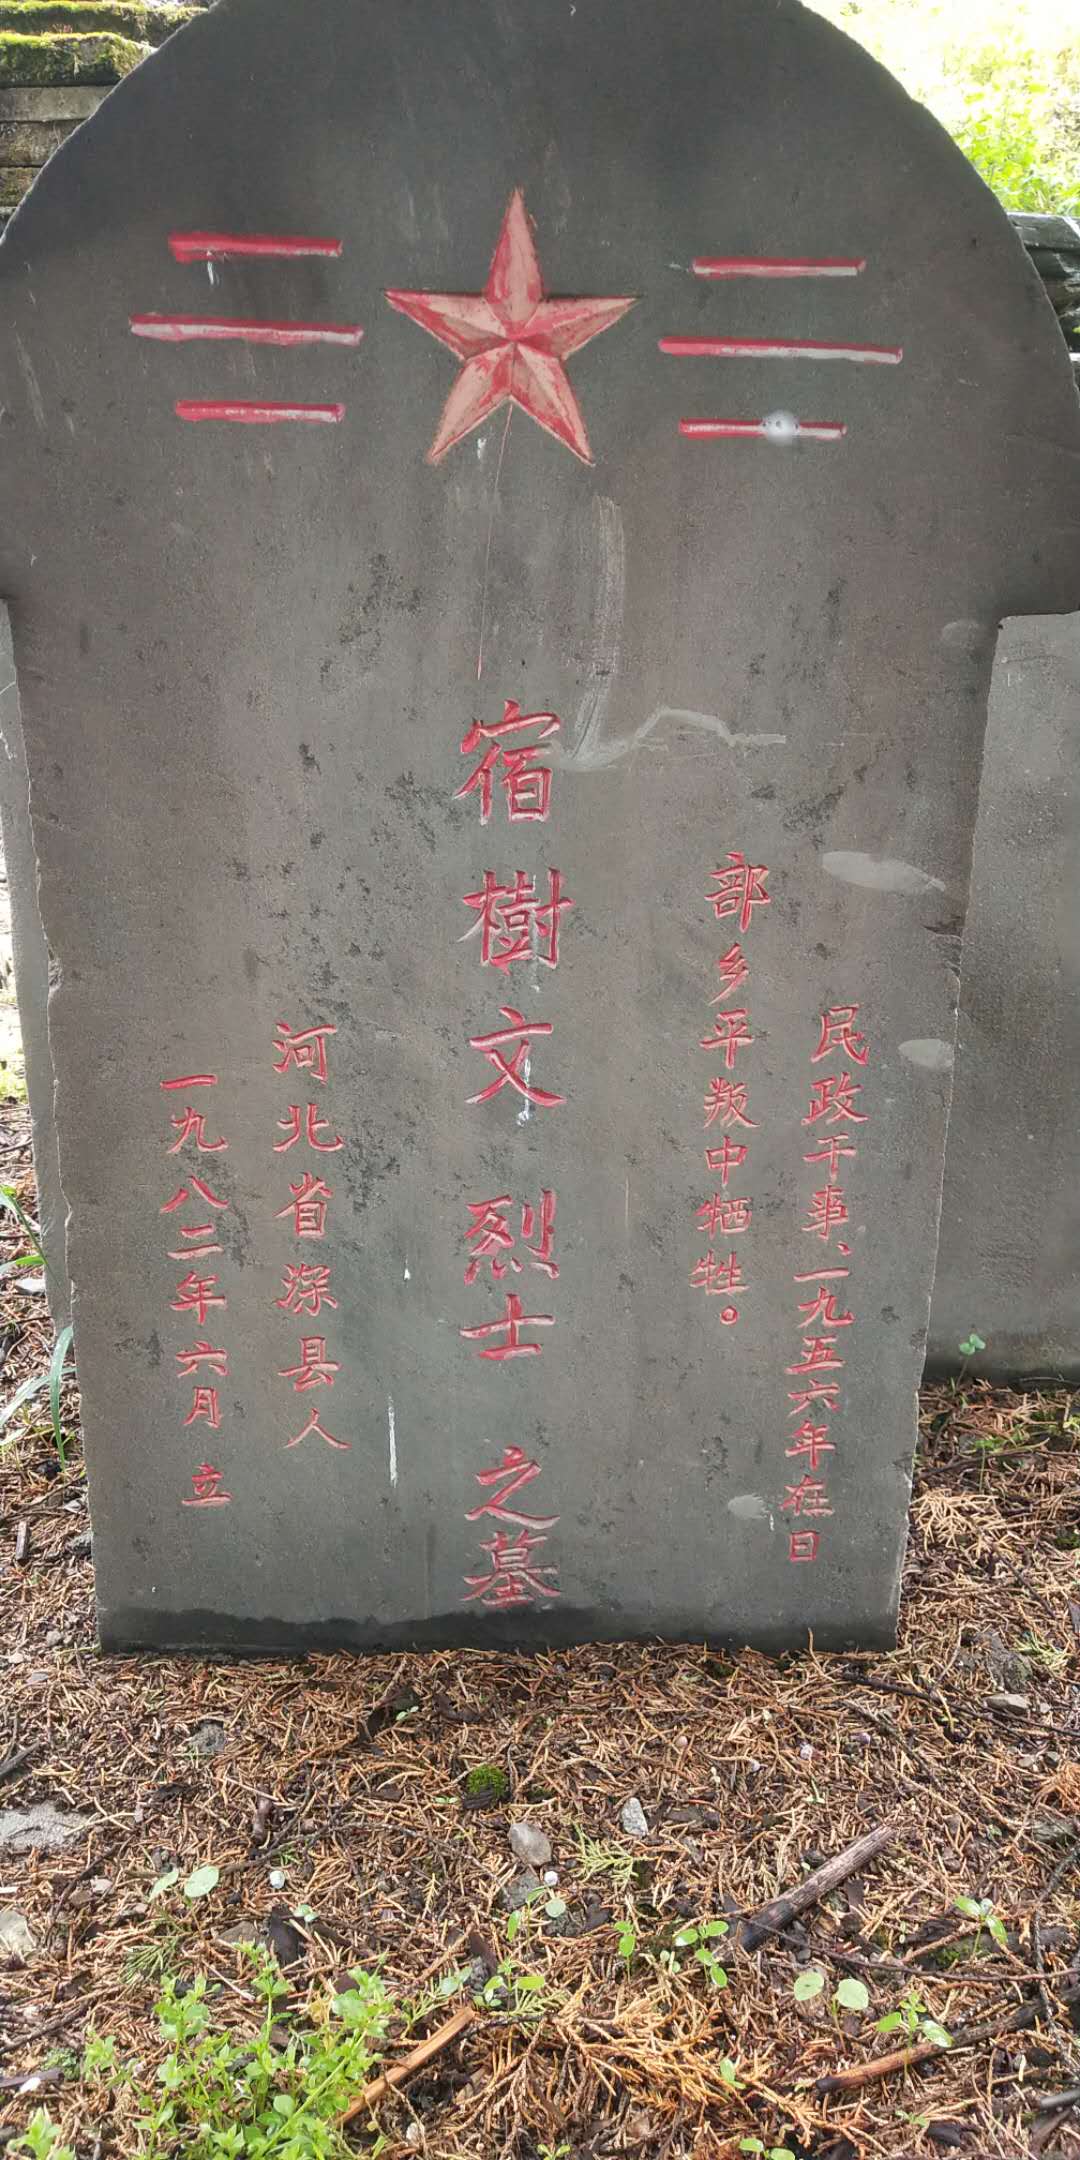 民政干事、一九五六年在日
部乡平叛中牺牲。
宿樹文烈士之墓
河北省深县人
一九八二年六月立